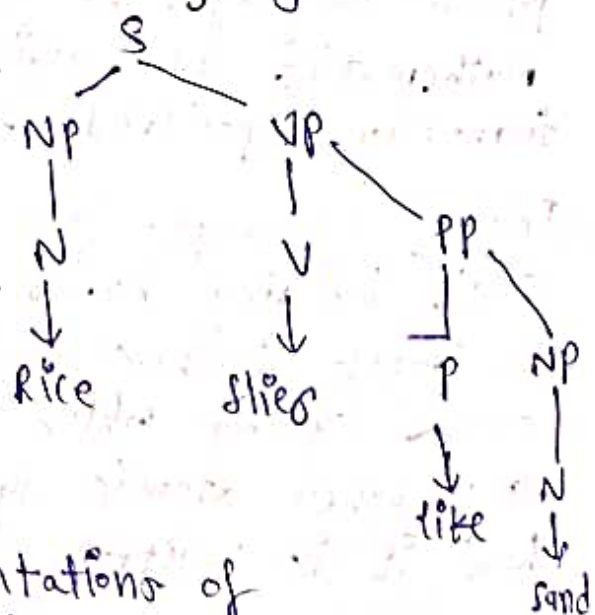 S
NP VP
N V PP
Rice flies P NP
like N
sand
tations of